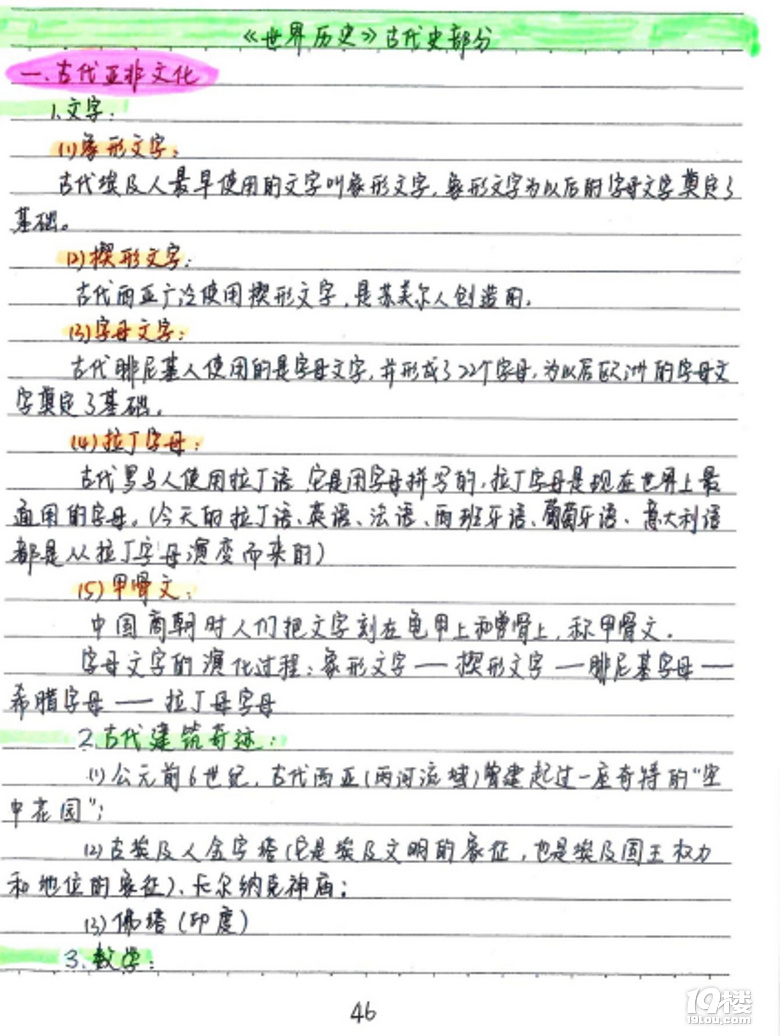 《世界历史》古代史部分
一.古代亚非文化
1.文字:
(1)象形文字:
古代埃及人最早使用的文字叫象形文字,象形文字为以后的字母文字奠定了
基础。
(2)楔形文字:
古代西亚广泛使用楔形文字,是苏美尔人创造用.
(3)字母文字:
古代腓尼基人使用的是字母文字,并形成了22个字母,为以后欧洲的字母文
字奠定了基础。
(4)拉丁字母:
古代罗马人使用拉丁语 它是用字母拼写的,拉丁字母是现在世界上最
通用的字母。(今天的拉丁语、英语、法语、西班牙语、葡萄牙语、意大利语
都是从拉丁字母演变而来的)
(5)甲骨文:
中国商朝时人们把文字刻在龟甲上和兽骨上,称甲骨文.
字母文字的演化过程:象形文字——楔形文字—腓尼基字母—
希腊字母——拉丁母字母
2.古代建筑奇迹:
(1)公元前6世纪,古代西亚(两河流域)曾建起过一座奇特的“空
中花园”;
(2)古埃及人金字塔(它是埃及文明的象征,也是埃及国王权力
和地位的象征)、卡尔纳克神庙;
(3)佛塔(印度)
3.数学:
46
19楼
19lou.com